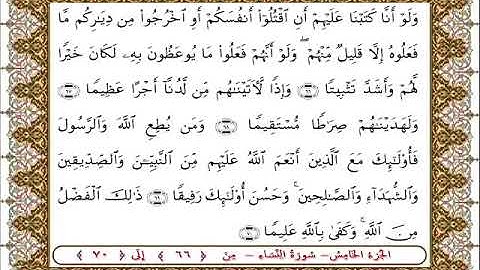 وَلَوْ أَنَّا كَتَبْنَا عَلَيْهِمْ أَنِ ٱقْتُلُوٓا۟ أَنفُسَكُمْ أَوِ ٱخْرُجُوا۟ مِن دِيَـٰرِكُم مَّا
فَعَلُوهُ إِلَّا قَلِيلٌ مِّنْهُمْ ۖ وَلَوْ أَنَّهُمْ فَعَلُوا۟ مَا يُوعَظُونَ بِهِۦ لَكَانَ خَيْرًا
لَّهُمْ وَأَشَدَّ تَثْبِيتًا ﴿٦٦﴾ وَإِذًا لَّـَٔاتَيْنَـٰهُم مِّن لَّدُنَّآ أَجْرًا عَظِيمًا ﴿٦٧﴾
وَلَهَدَيْنَـٰهُمْ صِرَٰطًا مُّسْتَقِيمًا ﴿٦٨﴾ وَمَن يُطِعِ ٱللَّهَ وَٱلرَّسُولَ
فَأُو۟لَـٰٓئِكَ مَعَ ٱلَّذِينَ أَنْعَمَ ٱللَّهُ عَلَيْهِم مِّنَ ٱلنَّبِيِّـۧنَ وَٱلصِّدِّيقِينَ
وَٱلشُّهَدَآءِ وَٱلصَّـٰلِحِينَ ۚ وَحَسُنَ أُو۟لَـٰٓئِكَ رَفِيقًا ﴿٦٩﴾ ذَٰلِكَ ٱلْفَضْلُ
مِنَ ٱللَّهِ ۚ وَكَفَىٰ بِٱللَّهِ عَلِيمًا ﴿٧٠﴾
الجزء الخامس - سورة النساء - من ﴿ ٦٦ ﴾ إلى ﴿ ٧٠ ﴾